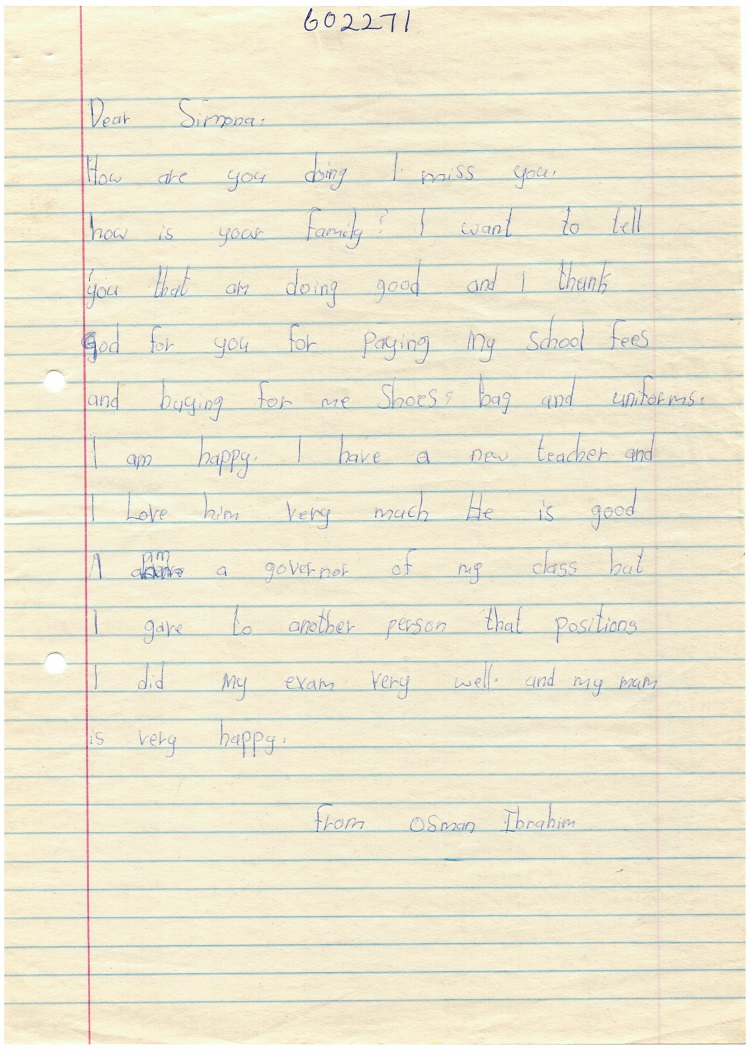 602271
Dear Simona.
How are you doing I miss you.
how is your family? I want to tell
you that am doing good and I thank
god for you for paying my school fees
and buying for me shoes, bag and uniforms.
I am happy. I have a new teacher and
I Love him very much He is good
I am a governor of my class but
I gave to another person that positions
I did My exam very well. and my mam
is very happy.
from Osman Ibrahim